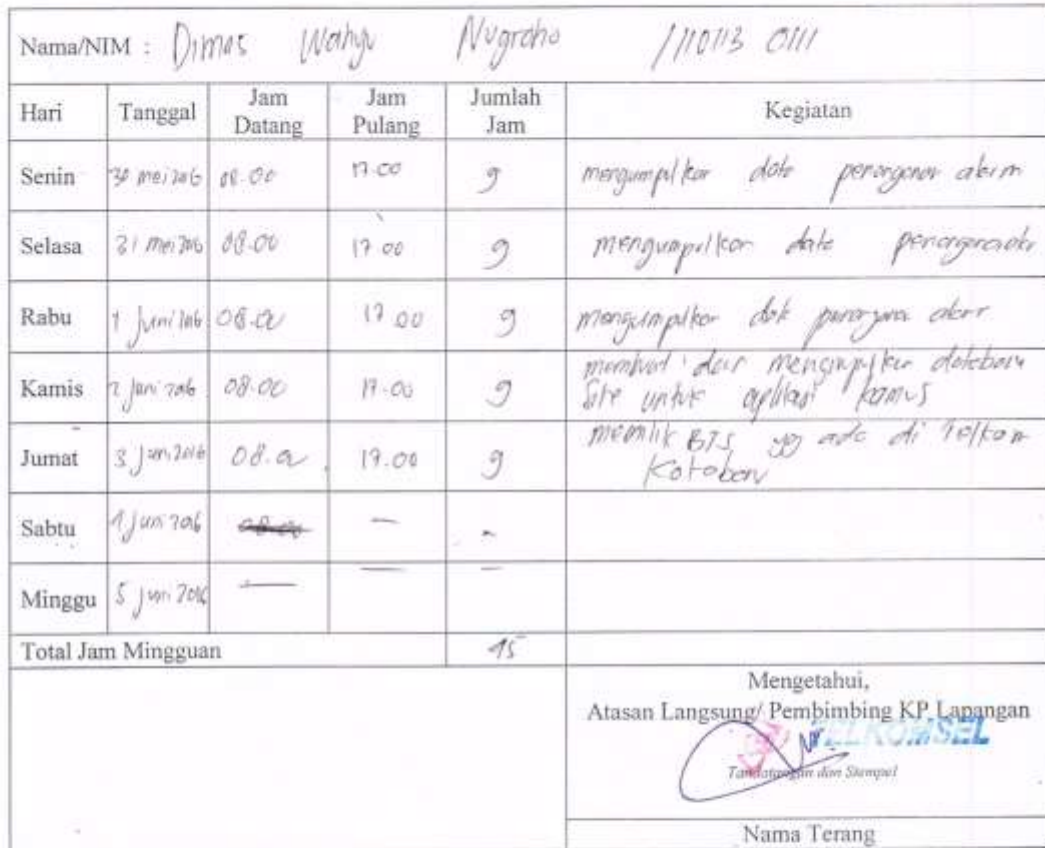 Nama/NIM : Dimas Wahyu Nugroho /1101130111
Hari Tanggal Jam Datang Jam Pulang Jumlah Jam Kegiatan
Senin 30 mei 2016 08.00 17.00 9 mengumpulkan data penanganan alarm
Selasa 31 mei 2016 08.00 17.00 9 mengumpulkan data
Rabu 1 Juni 2016 08.00 17.00 9 mengumpulkan data alarm
Kamis 2 Juni 2016 08.00 17.00 9 membuat dan mengumpulkan
Site untuk aplikasi kamus
Jumat 3 Juni 2016 08.00 17.00 9 BTS yg ada di Telkom
Kotabaru
Sabtu Juni 2016 08.00 — -
Minggu 5 Juni 2016 — — —
Total Jam Mingguan 45
Mengetahui,
Atasan Langsung/ Pembimbing KP Lapangan
TELKOMSEL
Tandatangan dan Stempel
Nama Terang